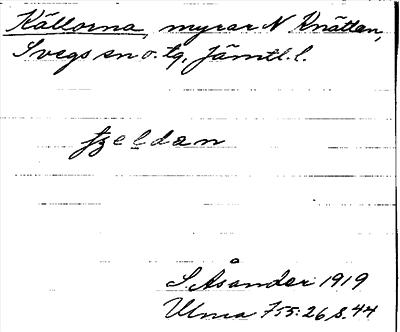 Källorna, myrar N Knätten,
Svegs sn o. tg, Jämtl. l.
tjeldan
S. Åsander 1919
Ulma 755:26 s. 44